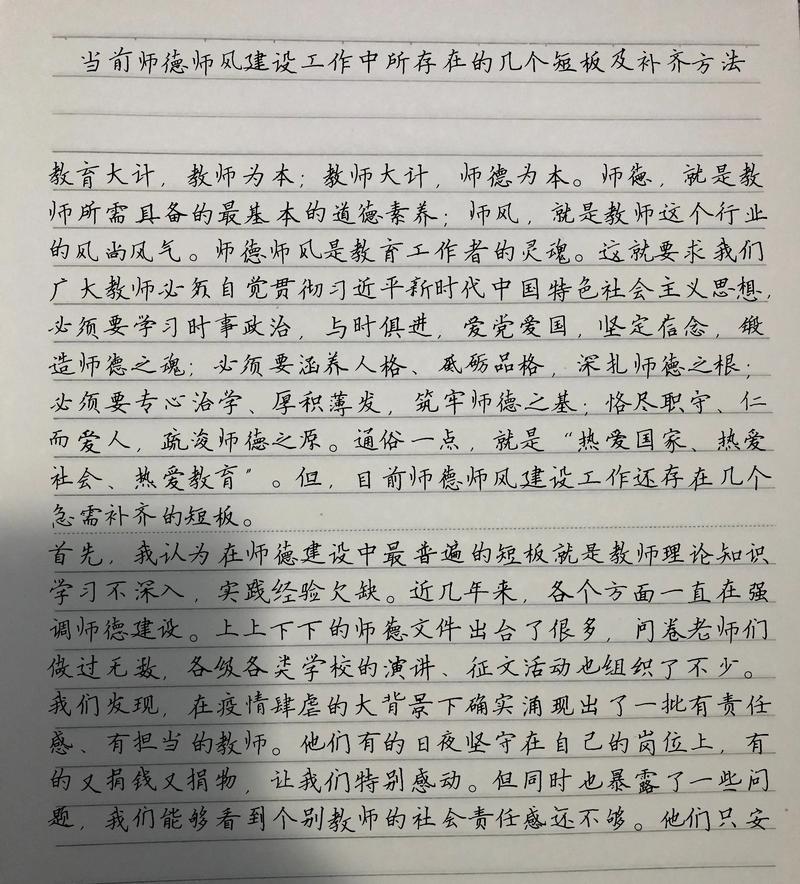 当前师德师风建设工作中所存在的几个短板及补齐方法
教育大计，教师为本；教师大计，师德为本。师德，就是教
师所需具备的最基本的道德素养；师风，就是教师这个行业
的风尚风气。师德师风是教育工作者的灵魂。这就要求我们
广大教师必须自觉贯彻习近平新时代中国特色社会主义思想，
必须要学习时事政治，与时俱进，爱党爱国，坚定信念，锻
造师德之魂；必须要涵养人格、砥砺品格，深扎师德之根；
必须要专心治学、厚积薄发，筑牢师德之基；恪尽职守、仁
而爱人，疏浚师德之原。通俗一点，就是“热爱国家、热爱
社会、热爱教育”。但，目前师德师风建设工作还存在几个
急需补齐的短板。
首先，我认为在师德建设中最普遍的短板就是教师理论知识
学习不深入，实践经验欠缺。近几年来，各个方面一直在强
调师德建设。上上下下的师德文件出台了很多，问卷老师们
做过无数，各级各类学校的演讲、征文活动也组织了不少。
我们发现，在疫情肆虐的大背景下确实涌现出了一批有责任
感、有担当的教师。他们有的日夜坚守在自己的岗位上，有
的又捐钱又捐物，让我们特别感动。但同时也暴露了一些问
题，我们能够看到个别教师的社会责任感还不够。他们只安